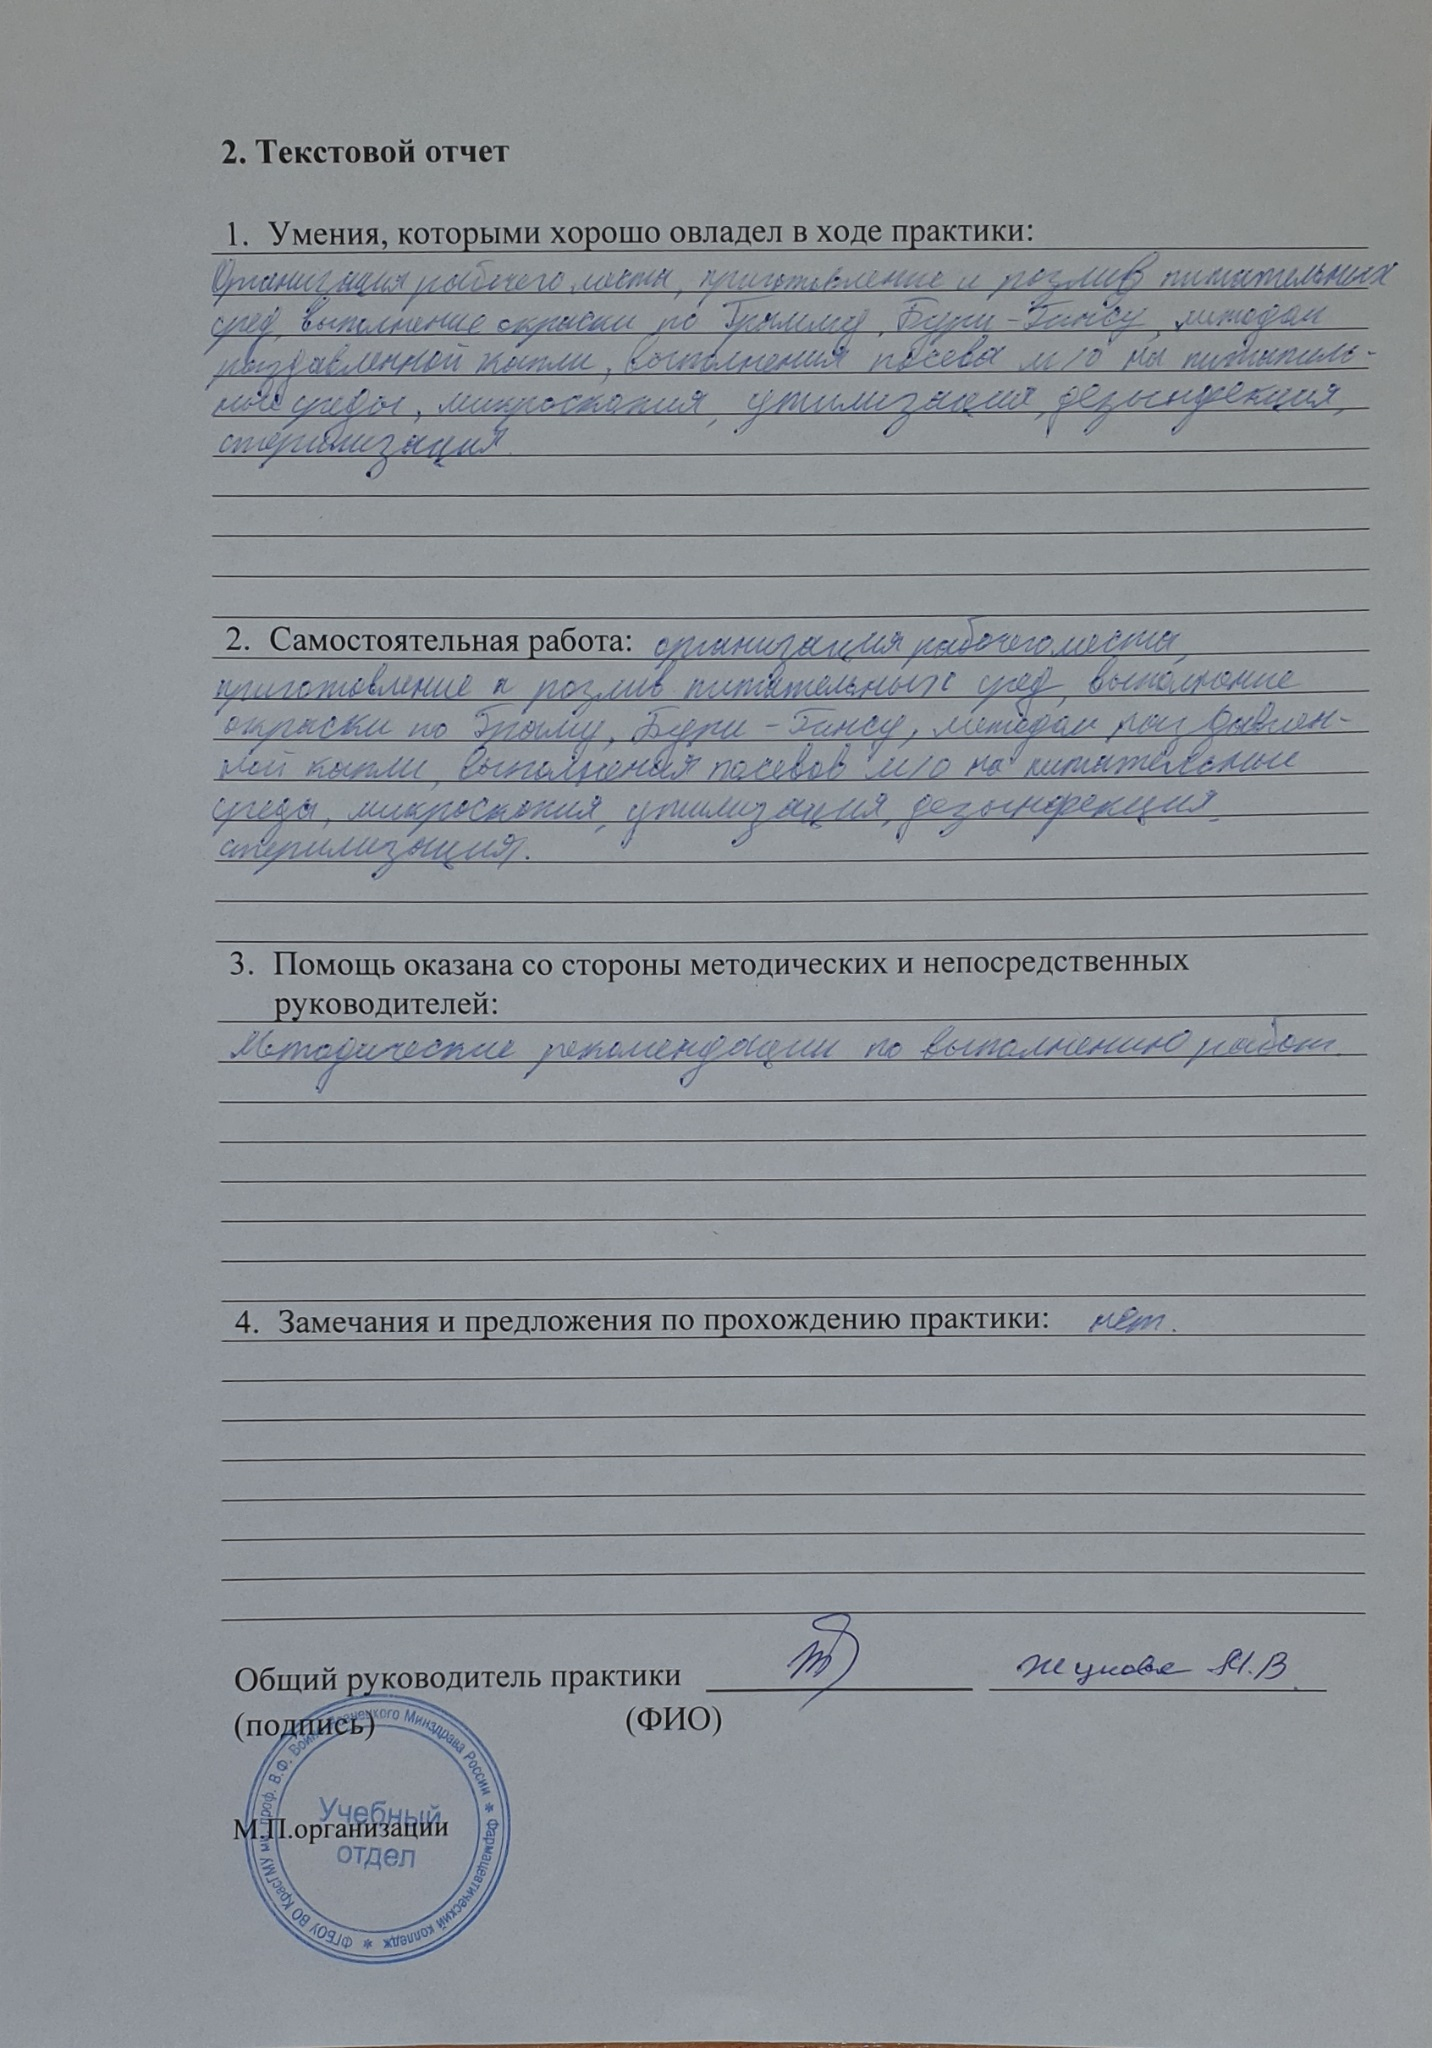 2. Текстовой отчет
1. Умения, которыми хорошо овладел в ходе практики:
Организация рабочего места, приготовление и розлив питательных
сред, выполнение окраски по Грамму, Бури-Гинсу, методом
раздавленной капли, выполнения посева м/о на питатель-
ные среды, микроскопия, утилизация, дезынфекция,
стерилизация.
2. Самостоятельная работа: организация рабочего места,
приготовление и розлив питательных сред, выполнение
окраски по Граму, Бури-Гинсу, методом раздавлен-
ной капли, выполнения посевов м/о на питательные
среды, микроскопия, утилизация, дезынфекция,
стерилизация.
3. Помощь оказана со стороны методических и непосредственных
руководителей:
Методические рекомендации по выполнению работ.
4. Замечания и предложения по прохождению практики: нет.
Общий руководитель практики Жукова М.В.
(подпись) (ФИО)
М.П.организации
Учебный
отдел
ФГБОУ ВО КрасГМУ им. проф. В.Ф. Войно-Ясенецкого Минздрава России * Фармацевтический колледж *